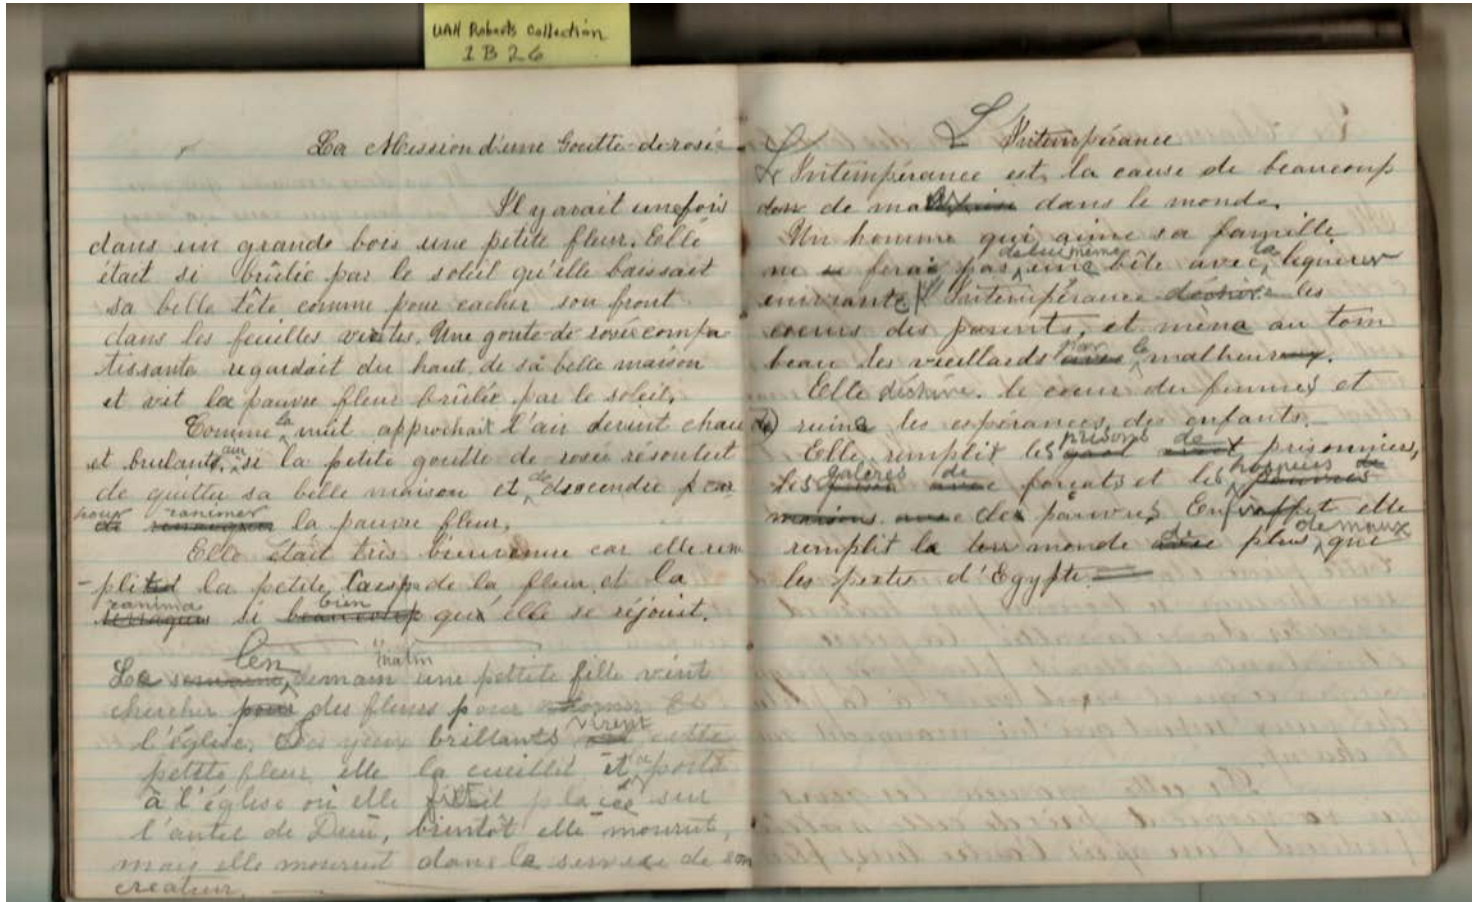 UAH Roberts Collection
1B26
La Mission d'une Goutte-de-rosée
Il y avait une fois
dans un grande bois une petite fleur. Elle
était si brûlée par le soleil qu'elle baissait
sa belle tête comme pour cacher son front
dans les feuilles vertes. Une goute-de-rosée compa
tissante regardait du haut de sa belle maison
et vit la pauvre fleur brûlée par le soleil.
Comme la nuit approchait l'air devint chau
et brulante, si la petite goutte de rosée résoulut
de quitter sa belle maison et de descendre pour
pour ranimer
la pauvre fleur.
Elle était très bienvenue car elle rem
-plit la petite de la fleur et la
ranima bien
si beaucoup qu'elle se réjouit.
len matin
La semaine, demain une petite fille vint
chercher pour des fleurs pour
l'église. Ses yeux brillants virent cette
petite fleur elle la cueillit et la porta
à l'église où elle fut placée sur
l'autel de Dieu, bientôt elle mourut,
mais elle mourrut dans la service de son
createur.
L'Intempérance
L'Intempérance est la cause de beaucoup
de dans le monde.
Un homme qui aime sa famille
de lui même la
ne ferai pas une bête avec liqueur
enivrante L'Intempérance déchire les
coeurs des parents, et mène au tom
beau les vieillards par le malheur.
Elle déchire le coeur des femmes et
ruine les espérances des enfants.
Elle remplit les prisons de prisonniers,
les galères de forçats et les hospices de
maisons avec des pauvres. En effet elle
remplit le monde de plus de maux que
les pertes d'Egypte.